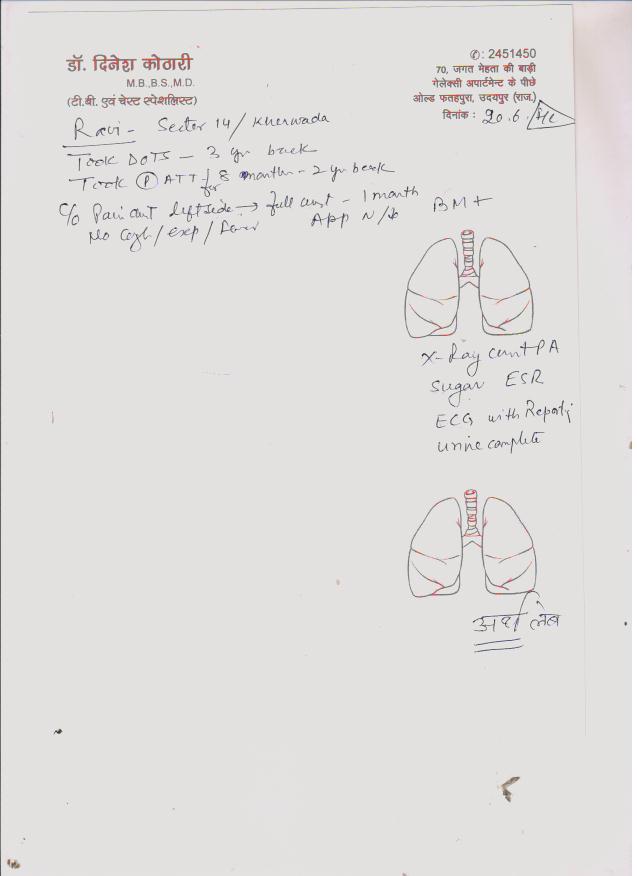 डॉ. दिनेश कोठारी
M.B.,B.S.,M.D.
(टी.बी. एवं चेस्ट स्पेशलिस्ट)
✆: 2451450
70, जगत मेहता की बाड़ी
गेलेक्सी अपार्टमेन्ट के पीछे
ओल्ड फतहपुरा, उदयपुर (राज.)
दिनांक : 20.6.
Ravi - Sector 14 / Kherwada
Took DOTS - 3 yr back
Took (P) ATT for 8 months - 2 yr back
C/o Pain cnt left side → full cnst - 1 month
No cogh / exp / fever App N/
BM+
X-Ray cnst PA
Sugar ESR
ECG with Reporting
Urine complete
अर्थ लेब